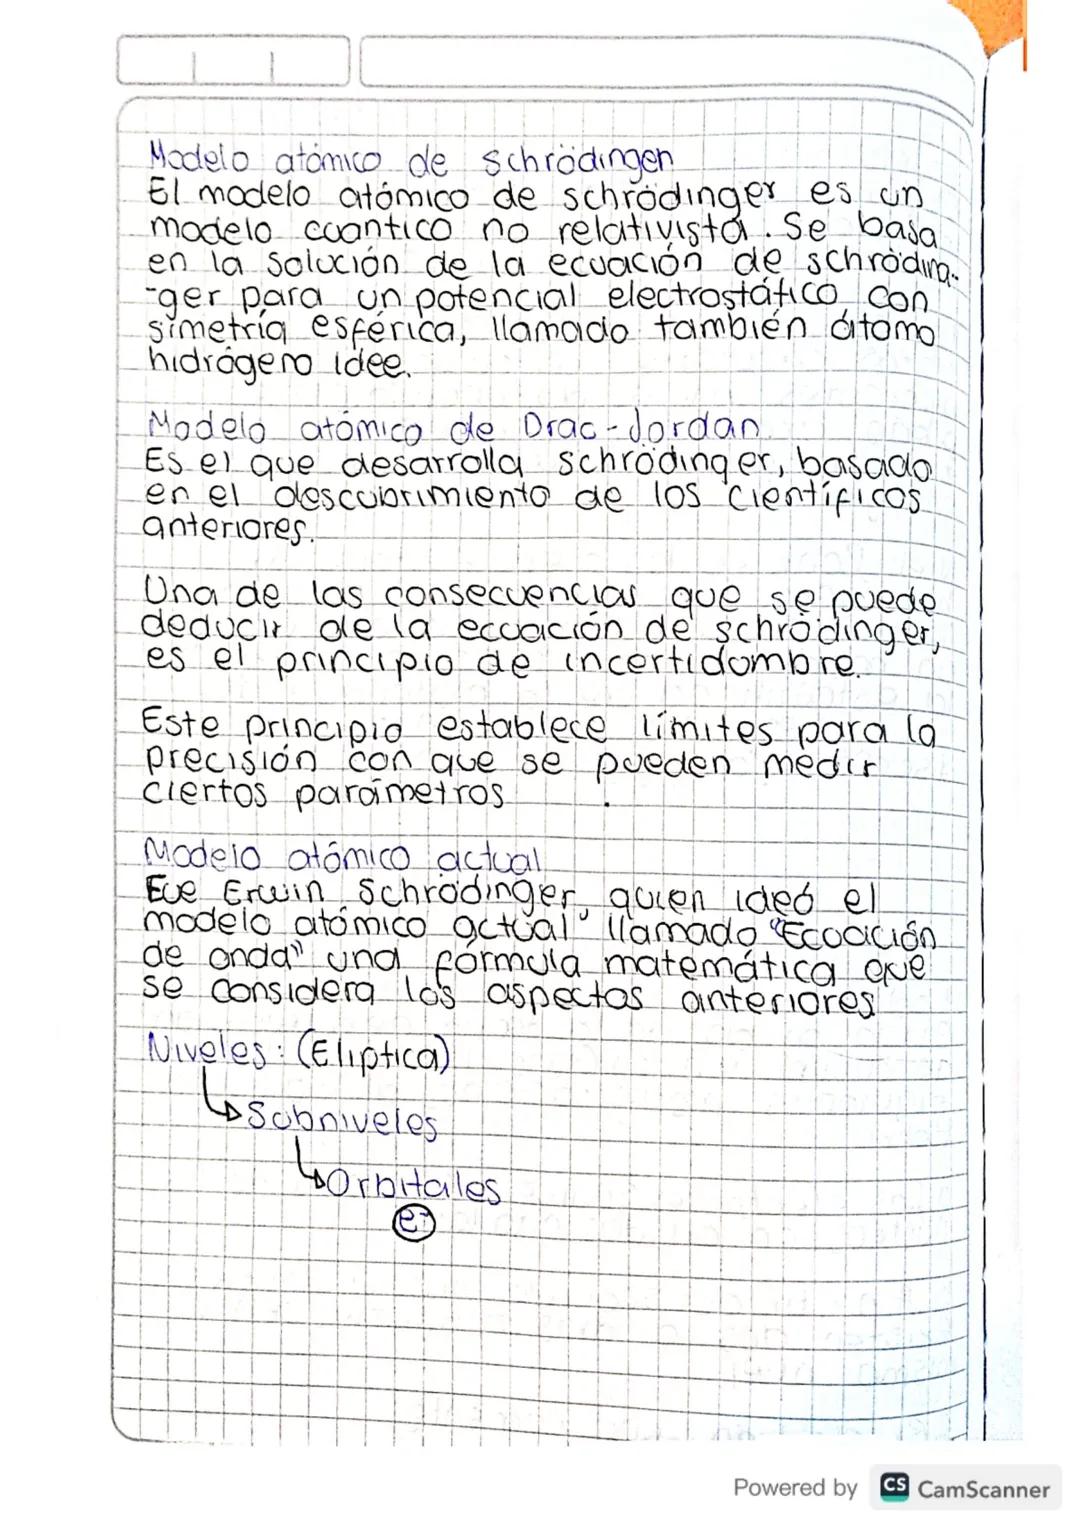 Modelo atómico de Schrödinger
El modelo atómico de schrödinger es un
modelo cuantico no relativista. Se basa
en la solución de la ecuación de schrödin-
-ger para un potencial electrostático con
simetría esférica, llamado también átomo
hidrógeno idee.
Modelo atómico de Drac-Jordan
Es el que desarrolla schrödinger, basado
en el descubrimiento de los científicos
anteriores.
Una de las consecuencias que se puede
deducir de la ecuación de schrödinger,
es el principio de incertidombre.
Este principio establece límites para la
precisión con que se pueden medir
ciertos parámetros.
Modelo atómico actual
Fue Erwin Schrödinger, quien ideó el
modelo atómico actual, llamado "Ecuación
de onda" una fórmula matemática que
se considera los aspectos anteriores
Niveles: (Eliptica)
Subniveles
Orbitales
e-
Powered by CS CamScanner